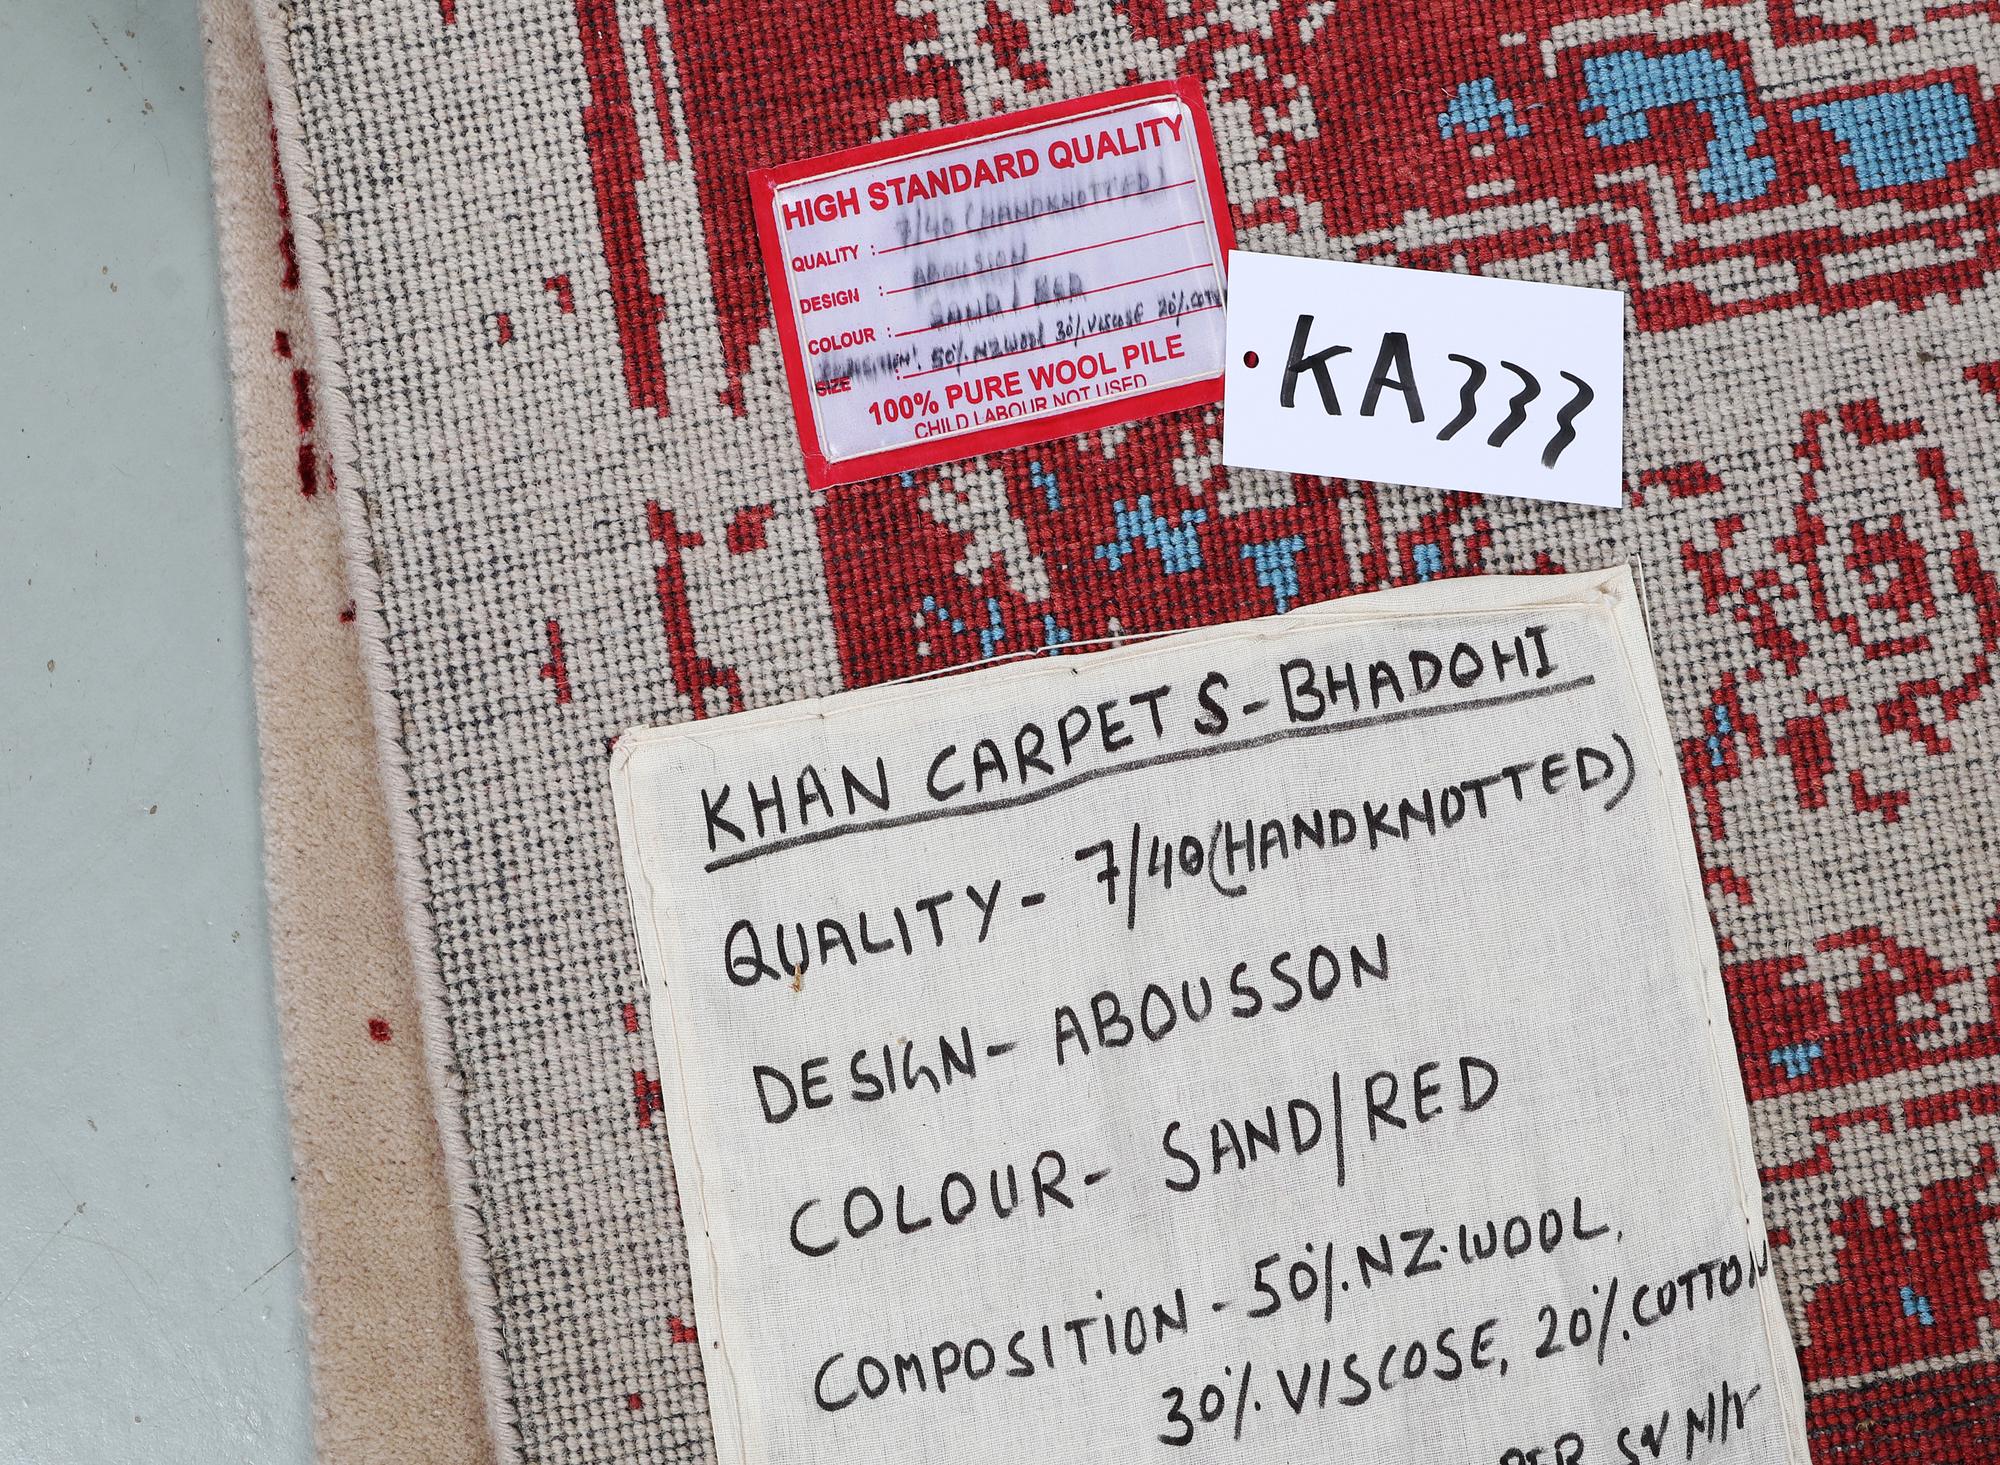 HIGH STANDARD QUALITY
QUALITY : 7/40 (HANDKNOTTED)
DESIGN : ABOUSSON
COLOUR : SAND / RED
50%. NZ WOOL 30%. VISCOSE 20%.
SIZE :
100% PURE WOOL PILE
CHILD LABOUR NOT USED
KA333
KHAN CARPETS-BHADOHI
QUALITY - 7/40(HANDKNOTTED)
DESIGN - ABOUSSON
COLOUR - SAND/RED
COMPOSITION - 50%. NZ. WOOL,
30%. VISCOSE, 20%. COTTON
PER